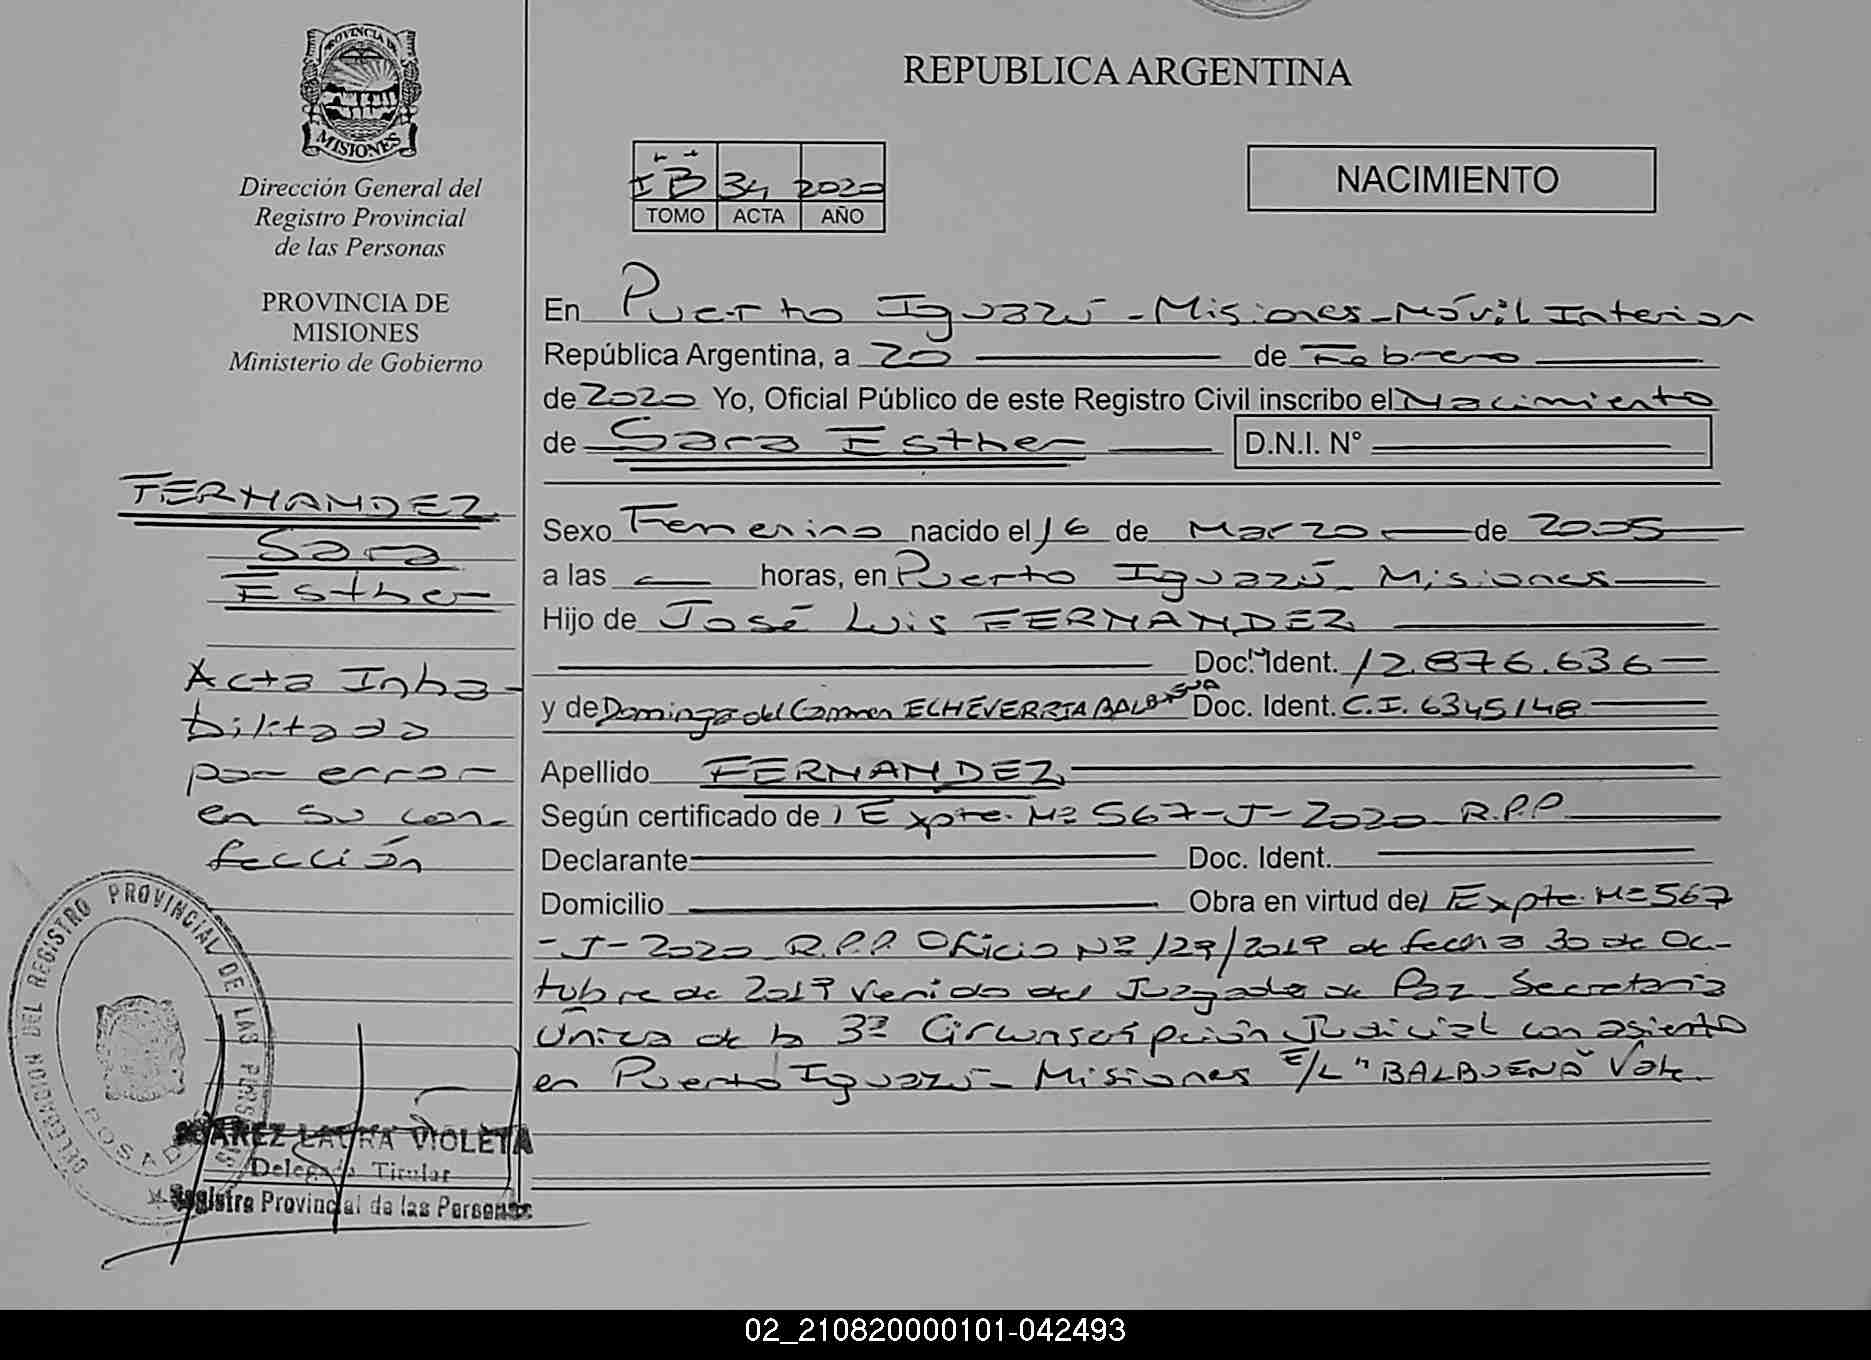 PROVINCIA DE
MISIONES
Dirección General del
Registro Provincial
de las Personas
PROVINCIA DE
MISIONES
Ministerio de Gobierno
FERNANDEZ
Sara
Esther
Acta Inha-
bilitada
por error
en su con-
fección
DELEGACION DEL REGISTRO PROVINCIAL DE LAS PERSONAS
POSADAS
SUAREZ LAURA VIOLETA
Delegada Titular
Registro Provincial de las Personas
REPUBLICA ARGENTINA
"IB" 34 2020
TOMO ACTA AÑO
NACIMIENTO
En Puerto Iguazú - Misiones - Móvil Interior
República Argentina, a 20 de Febrero
de 2020 Yo, Oficial Público de este Registro Civil inscribo el Nacimiento
de Sara Esther D.N.I. N°
Sexo Femenino nacido el 16 de Marzo de 2005
a las horas, en Puerto Iguazú - Misiones
Hijo de José Luis FERNANDEZ
Doc. Ident. 12.876.636
y de Dominga del Carmen ECHEVERRIA BALBUENA Doc. Ident. C.I. 6345148
Apellido FERNANDEZ
Según certificado de / Expte. Nº 567-J-2020 R.P.P
Declarante Doc. Ident.
Domicilio Obra en virtud del Expte. Nº 567
-J-2020 R.P.P. Oficio Nº 129/2019 de fecha 30 de Oc-
tubre de 2019 venido del Juzgado de Paz Secretaria
Única de la 3ª Circunscripción Judicial con asiento
en Puerto Iguazú - Misiones E/L "BALBUENA" Vale.
02_210820000101-042493